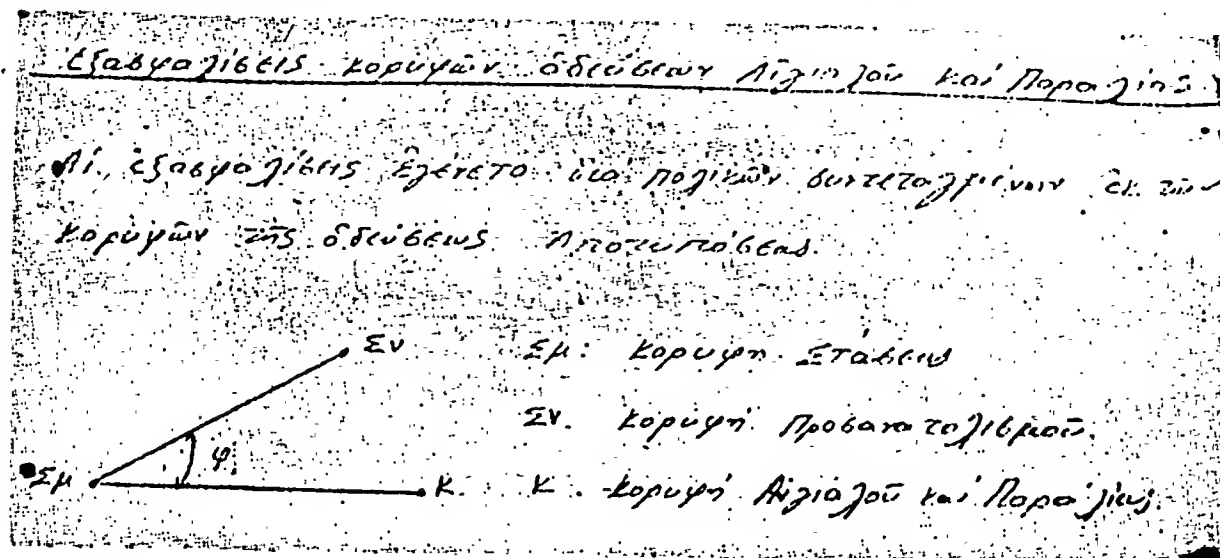 Ἐξασφαλίσεις κορυφῶν ὁδεύσεων Αἰγιαλοῦ καί Παραλίας
Αἱ ἐξασφαλίσεις ἐγένετο διά πολικῶν συντεταγμένων ἐκ τῶν
κορυφῶν τῆς ὁδεύσεως Ἀποτυπώσεως.
Σν Σμ: κορυφη Στάσεως
Σν. κορυφή Προσανατολισμοῦ.
φ.
Σμ Κ. Κ. κορυφή Αἰγιαλοῦ καί Παραλίας.